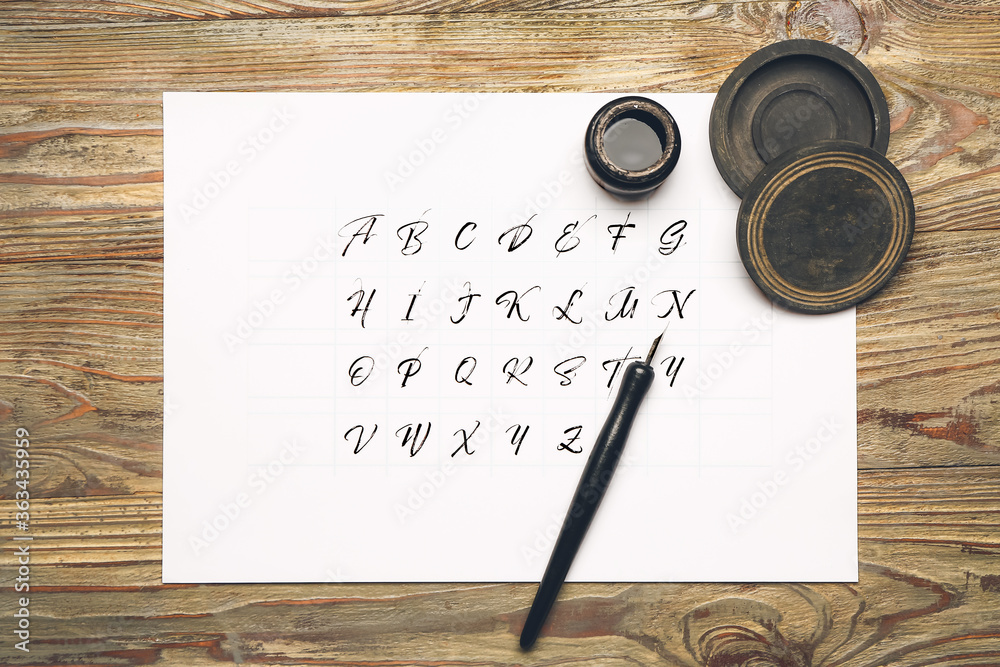 A B C D E F G
H I J K L M N
O P Q R S T Y
V W X Y Z
Adobe Stock | #363435959